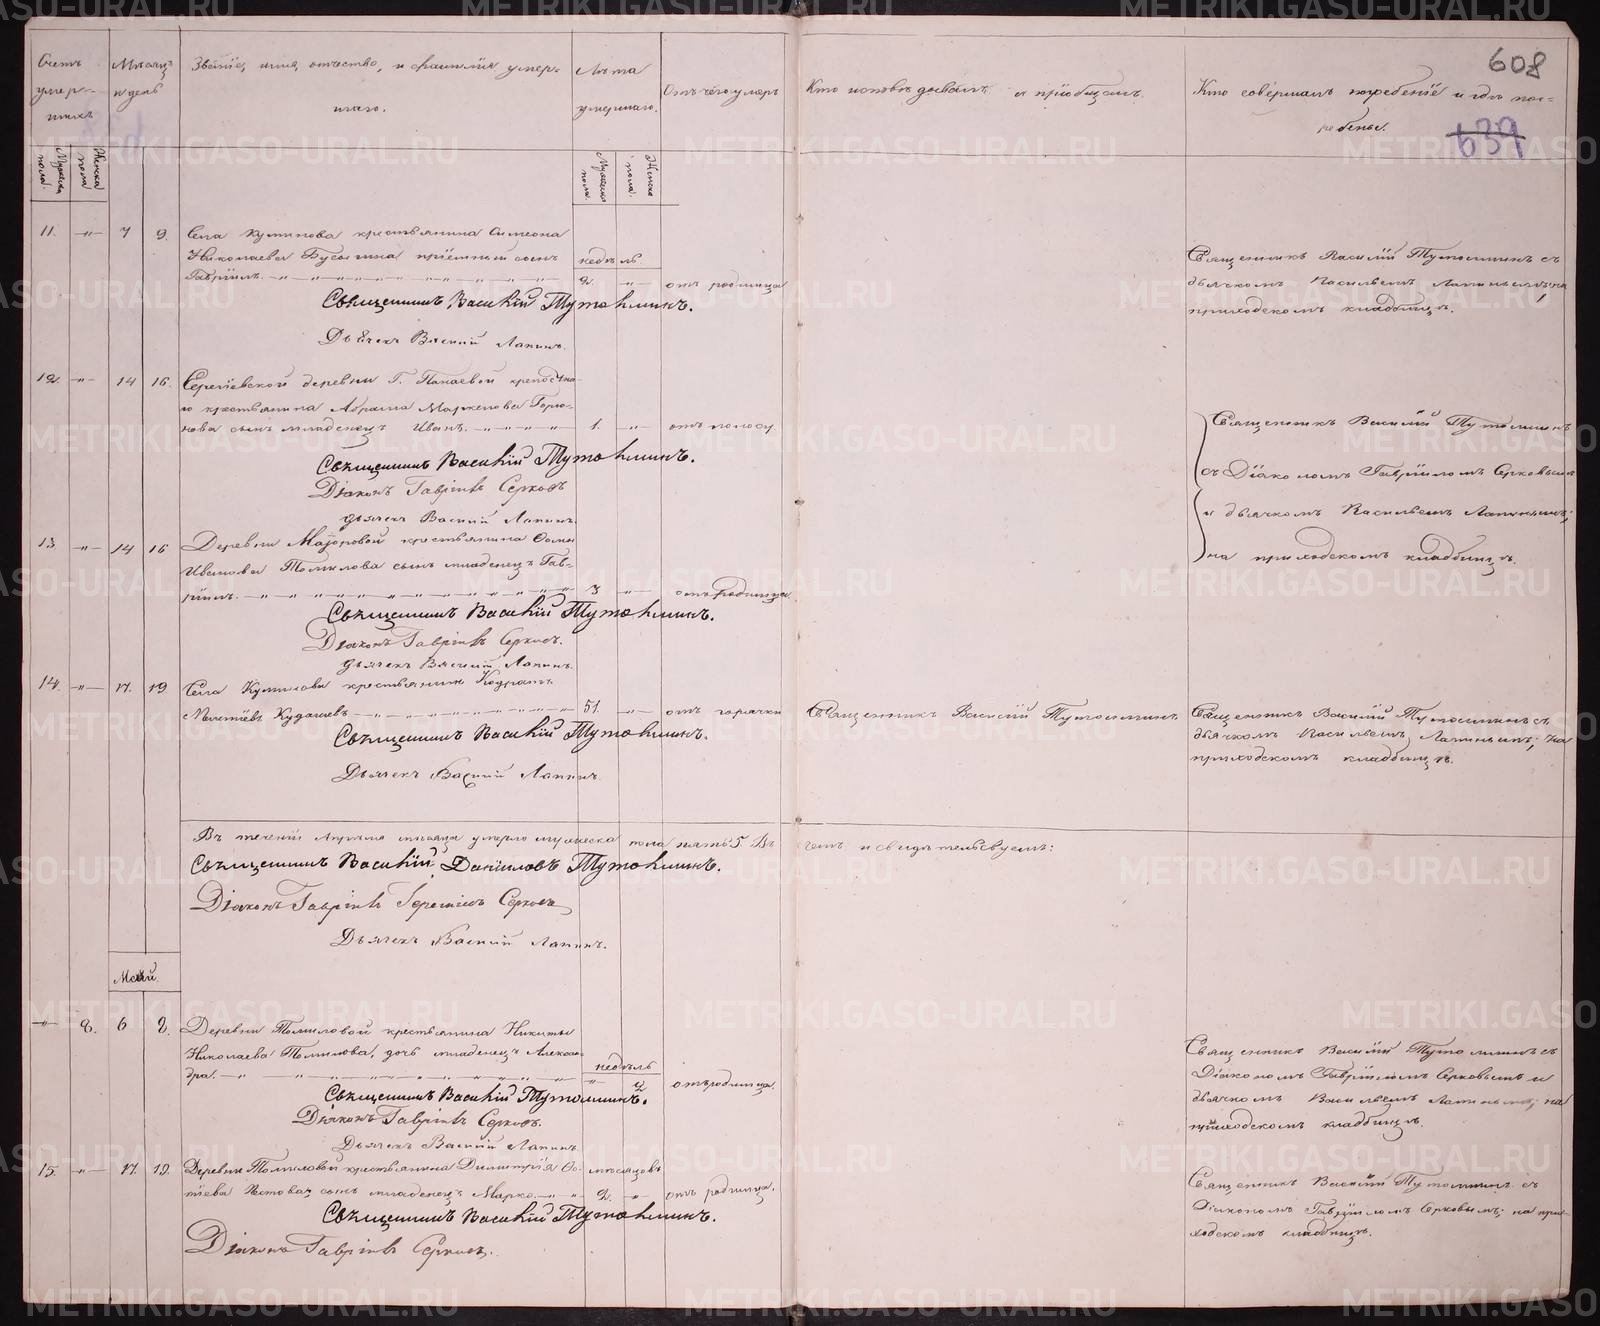 608
639
Счетъ умерших
Мѣсяцъ и день
Званіе, имя, отчество, и фамилія умер-
шаго.
Лѣта умершаго.
Отъ чего умеръ
Кто исповѣдывалъ и пріобщалъ.
Кто совершалъ погребеніе и гдѣ пог-
ребены.
Мужеска пола.
Женска пола
Мужеска пола.
Женска пола.
11. -"- 7 9. Села крестьянина Симеона
Николаева пріемный сынъ недѣль
Гавріилъ. 2. -"- отъ родимца
Священникъ Василій Тутолминъ.
Дьячекъ Василій Лапинъ.
Священникъ Василій Тутолминъ съ
дьячкомъ Васильемъ Лапинымъ, на
приходскомъ кладбищѣ.
12. -"- 14 16. Сергіевской деревни Г. крепостна-
го крестьянина Абрама Горю-
нова сынъ младенецъ Иванъ. 1. -"- отъ поносу
Священникъ Василій Тутолминъ.
Діаконъ Гавріилъ Серковъ
дьячекъ Василій Лапинъ.
Священникъ Василій Тутолминъ
съ Діакономъ Гавріиломъ Серковымъ
и дьячкомъ Васильемъ Лапинымъ;
на приходскомъ кладбищѣ.
13. -"- 14 16 Деревни Маіоровой крестьянина Фомы
Иванова Томилова сынъ младенецъ Гав-
ріилъ. 3 -"- отъ родимца
Священникъ Василій Тутолминъ.
Діаконъ Гавріилъ Серковъ.
дьячекъ Василій Лапинъ.
14. -"- 17. 19 Села крестьянинъ Кодратъ
51. -"- отъ горячки
Священникъ Василій Тутолминъ
Священникъ Василій Тутолминъ съ
дьячкомъ Васильемъ Лапинымъ; на
приходскомъ кладбищѣ.
Священникъ Василій Тутолминъ.
Дьячекъ Василій Лапинъ.
Въ теченіи Апрѣля мѣсяца умерло мужеска пола пять 5 Въ чемъ и свидѣтельствуемъ:
Священникъ Василій Даниловъ Тутолминъ.
Діаконъ Гавріилъ Іереміевъ Серковъ
Дьячекъ Василій Лапинъ.
Май.
-"- 2. 6 8. Деревни Томиловой крестьянина Никиты
Николаева Томилова, дочь младенецъ Алексан-
дра. недѣль
-"- 2 отъ родимца.
Священникъ Василій Тутолминъ.
Діаконъ Гавріилъ Серковъ.
Дьячекъ Василій Лапинъ.
Священникъ Василій Тутолминъ съ
Діакономъ Гавріиломъ Серковымъ и
дьячкомъ Васильемъ Лапинымъ; на
приходскомъ кладбищѣ.
15. -"- 17. 19. Деревни Томиловой крестьянина Димитрія Фо- мѣсяцовъ
тіева сынъ младенецъ Марко. 2. -"- отъ родимца.
Священникъ Василій Тутолминъ.
Діаконъ Гавріилъ Серковъ.
Священникъ Василій Тутолминъ съ
Діакономъ Гавріиломъ Серковымъ; на при-
ходскомъ кладбищѣ.
METRIKI.GASO-URAL.RU